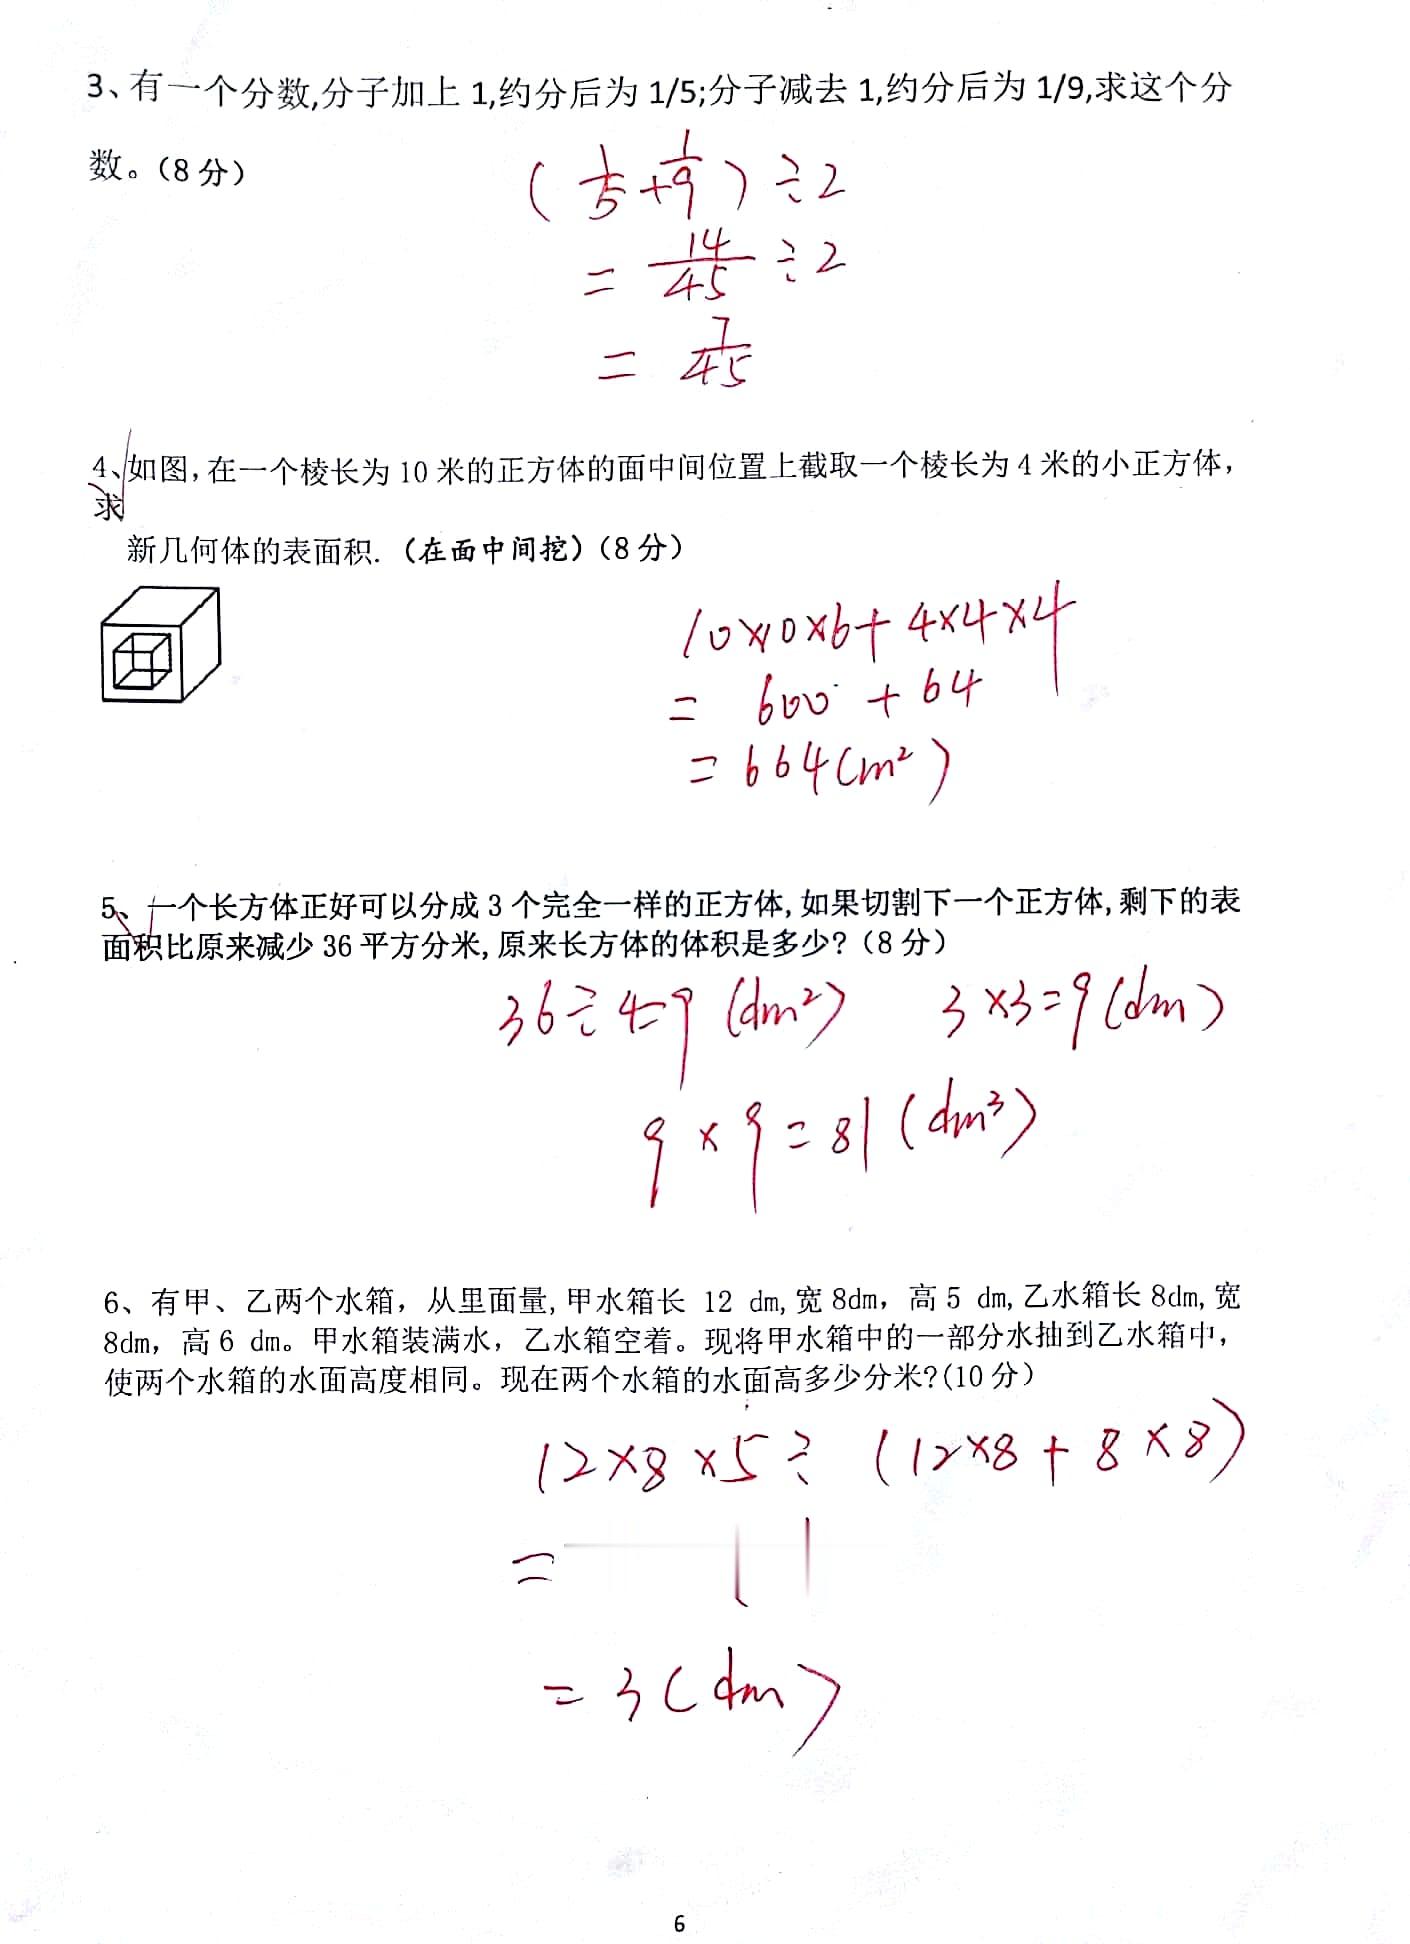 3、有一个分数,分子加上1,约分后为1/5;分子减去1,约分后为1/9,求这个分
数。(8分)
(1/5+1/9)÷2
=14/45÷2
=7/45
4、如图,在一个棱长为10米的正方体的面中间位置上截取一个棱长为4米的小正方体,
求
新几何体的表面积.(在面中间挖)(8分)
10×10×6+4×4×4
=600+64
=664(m²)
5、一个长方体正好可以分成3个完全一样的正方体,如果切割下一个正方体,剩下的表
面积比原来减少36平方分米,原来长方体的体积是多少?(8分)
36÷4=9(dm²) 3×3=9(dm)
9×9=81(dm³)
6、有甲、乙两个水箱，从里面量,甲水箱长 12 dm,宽8dm，高5 dm,乙水箱长8dm,宽
8dm，高6 dm。甲水箱装满水，乙水箱空着。现将甲水箱中的一部分水抽到乙水箱中，
使两个水箱的水面高度相同。现在两个水箱的水面高多少分米?(10分)
12×8×5÷(12×8+8×8)
=
=3(dm)
6